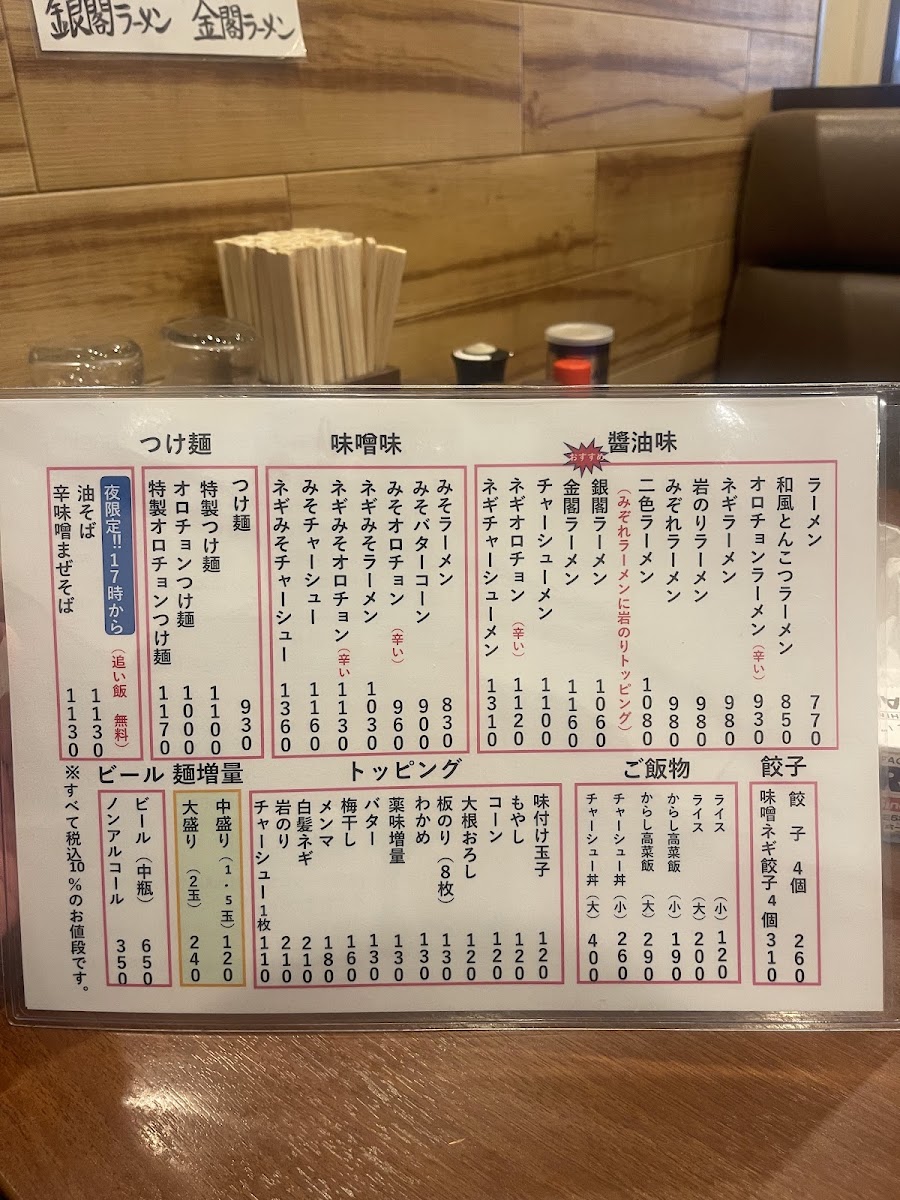 銀閣ラーメン 金閣ラーメン
醬油味
おすすめ
ラーメン 770
和風とんこつラーメン 850
オロチョンラーメン(辛い) 930
ネギラーメン 980
岩のりラーメン 980
みぞれラーメン 980
二色ラーメン 1080
(みぞれラーメンに岩のりトッピング)
銀閣ラーメン 1060
金閣ラーメン 1160
チャーシューメン 1100
ネギオロチョン(辛い) 1120
ネギチャーシューメン 1310
味噌味
みそラーメン 830
みそバターコーン 900
みそオロチョン(辛い) 960
ネギみそラーメン 1030
ネギみそオロチョン(辛い 1130
みそチャーシュー 1160
ネギみそチャーシュー 1360
つけ麺
つけ麺 930
特製つけ麺 1100
オロチョンつけ麺 1000
特製オロチョンつけ麺 1170
夜限定!!17時から(追い飯 無料)
油そば 1130
辛味噌まぜそば 1130
餃子
餃子 4個 260
味噌ネギ餃子4個 310
ご飯物
ライス(小) 120
ライス(大) 200
からし高菜飯(小) 190
からし高菜飯(大) 290
チャーシュー丼(小) 260
チャーシュー丼(大) 400
トッピング
味付け玉子 120
もやし 120
コーン 120
大根おろし 120
板のり(8枚) 130
わかめ 130
薬味増量 130
バター 130
梅干し 160
メンマ 180
白髪ネギ 210
岩のり 210
チャーシュー1枚 110
麺増量
中盛り(1.5玉) 120
大盛り(2玉) 240
ビール
ビール(中瓶) 650
ノンアルコール 350
※すべて税込10%のお値段です。